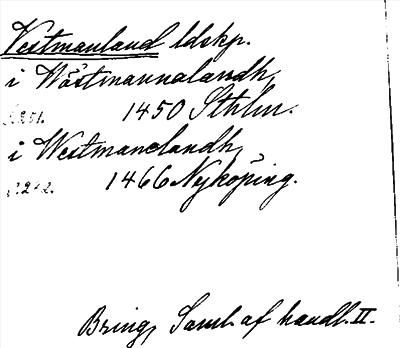 Vestmanland ldskp.
i Wästmannalandh,
S. 251. 1450 Sthlm.
i Westmanelandh,
S. 242. 1466 Nyköping.
Bring, Saml. af handl. II.